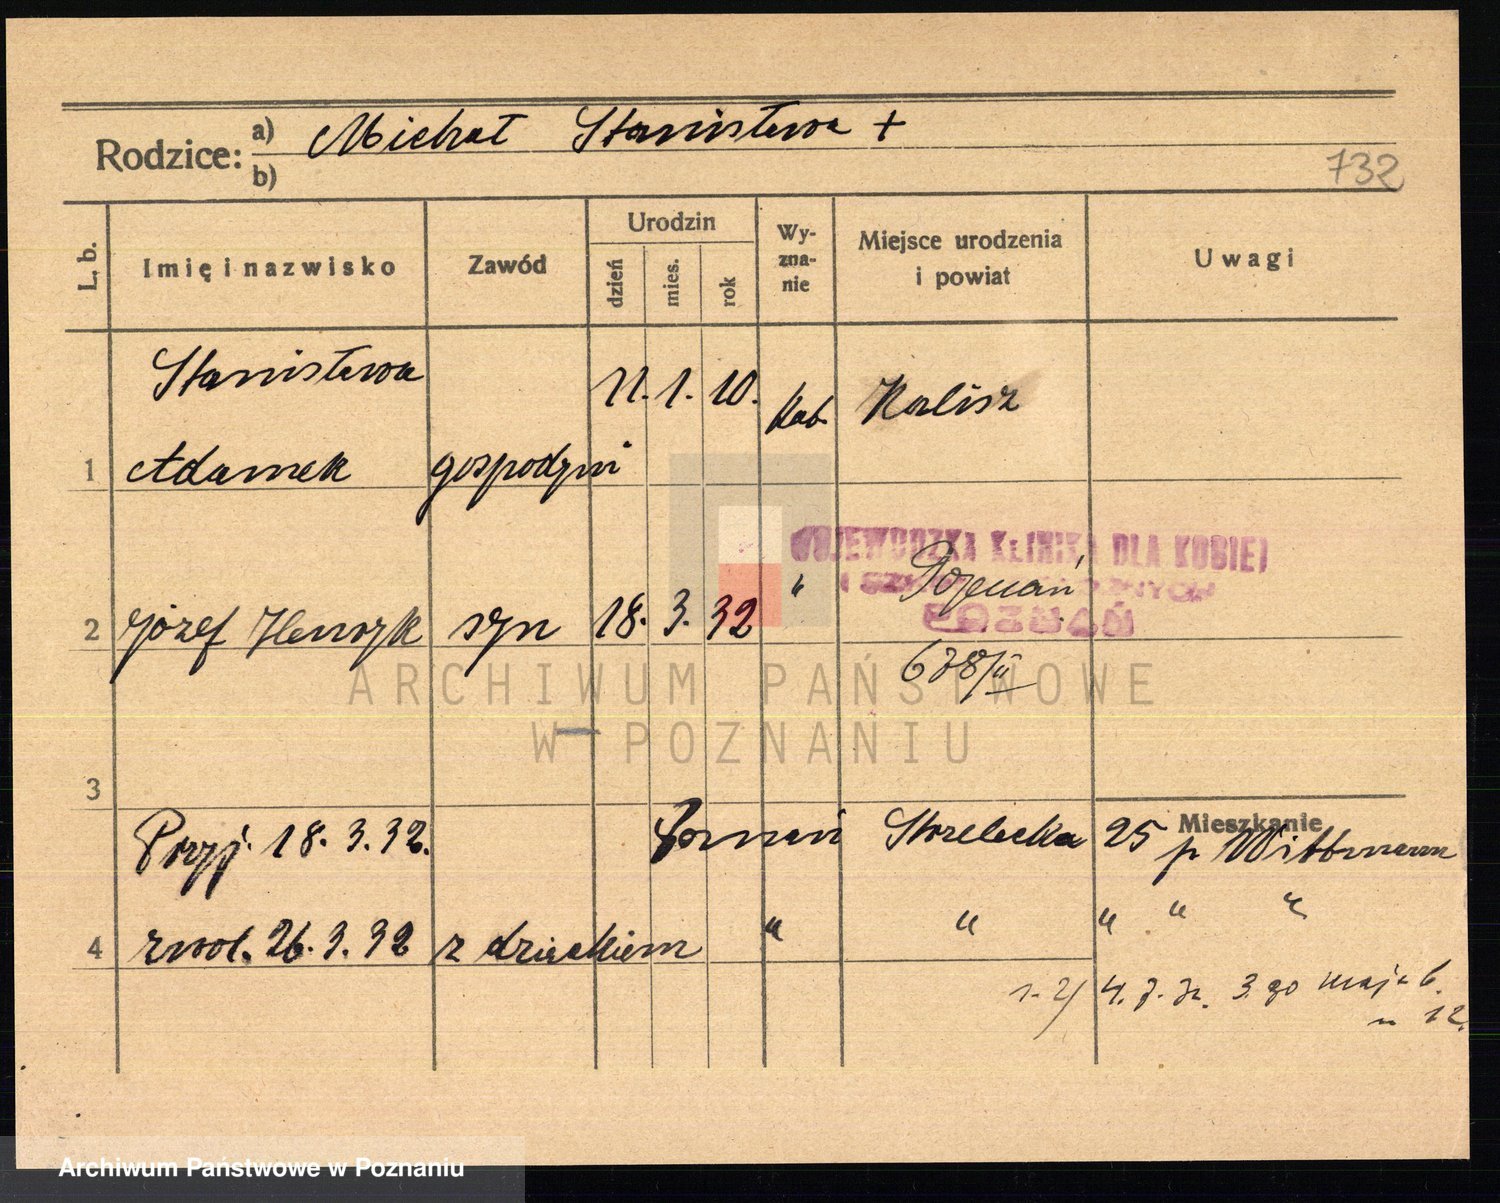 Rodzice: a) Michał Stanisława +
b)
732
L. b. Imię i nazwisko Zawód Urodzin dzień mies. rok Wy-zna-nie Miejsce urodzenia i powiat Uwagi
Stanisława 11. 1. 10. kat. Kalisz
1 Adamek gospodyni
WOJEWÓDZKA KLINIKA DLA KOBIET
2 Józef Henryk syn 18. 3. 32 " Poznań
POZNAŃ
678/II
ARCHIWUM PAŃSTWOWE
W POZNANIU
3
Mieszkanie
Przyj. 18. 3. 32. Poznań Strzelecka 25 p. Wittmann
4 zwol. 26. 3. 32 z dzieckiem " " " " "
4. 7. 32. 3 go maja 6.
12.
Archiwum Państwowe w Poznaniu